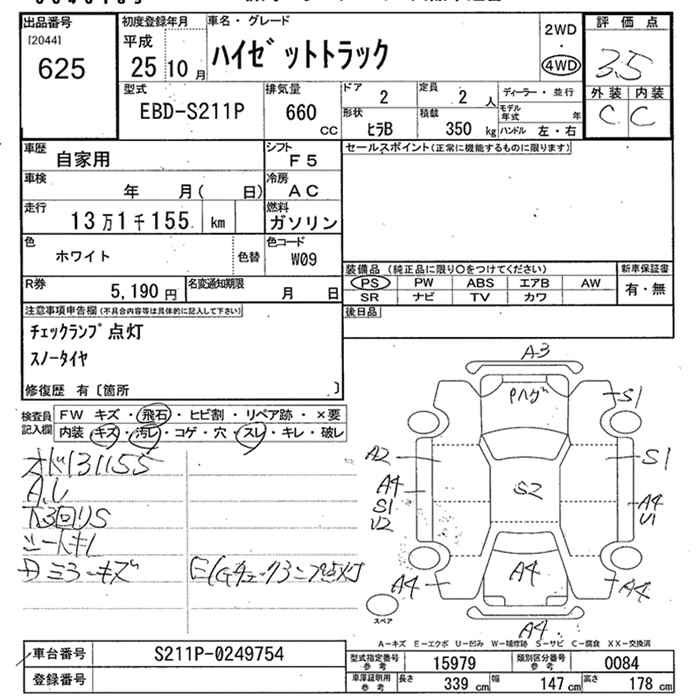 出品番号
[2044]
625
初度登録年月
平成
25 10 月
車名・グレード
ハイゼットトラック
2WD
・
4WD
評価点
3.5
外装 内装
C C
型式
EBD-S211P
排気量
660
CC
ドア
2
定員
2 人
形状
ヒラB
積載
350 kg
ディーラー・並行
モデル年式 年
ハンドル 左・右
車歴
自家用
シフト
F5
車検
年 月( 日)
冷房
AC
走行
13万1千155 km
燃料
ガソリン
色
ホワイト
色替
色コード
W09
R券
5,190 円
名変通知期限
月 日
セールスポイント(正常に機能するものに限ります)
装備品(純正品に限り○をつけてください)
PS PW ABS エアB AW
SR ナビ TV カワ
新車保証書
有・無
後日品
注意事項申告欄(不具合内容等は具体的に記入して下さい)
チェックランプ点灯
スノータイヤ
修復歴 有〔箇所 〕
検査員記入欄
FW キズ・飛石・ヒビ割・リペア跡・×要
内装・キズ・汚レ・コゲ・穴・スレ・キレ・破レ
オド131155
下回りS
シートキレ
ミラーキズ
点灯
A3
S1
A2
S1
A4
S1
U2
S2
A4
U1
A4
A4
A4
A4
スペア
A－キズ E－エクボ U－凹み W－補修跡 S－サビ C－腐食 XX－交換済
車台番号
S211P-0249754
登録番号
型式指定番号 参考
15979
類別区分番号 参考
0084
車庫証明用 参考
長さ 339 cm
幅 147 cm
高さ 178 cm